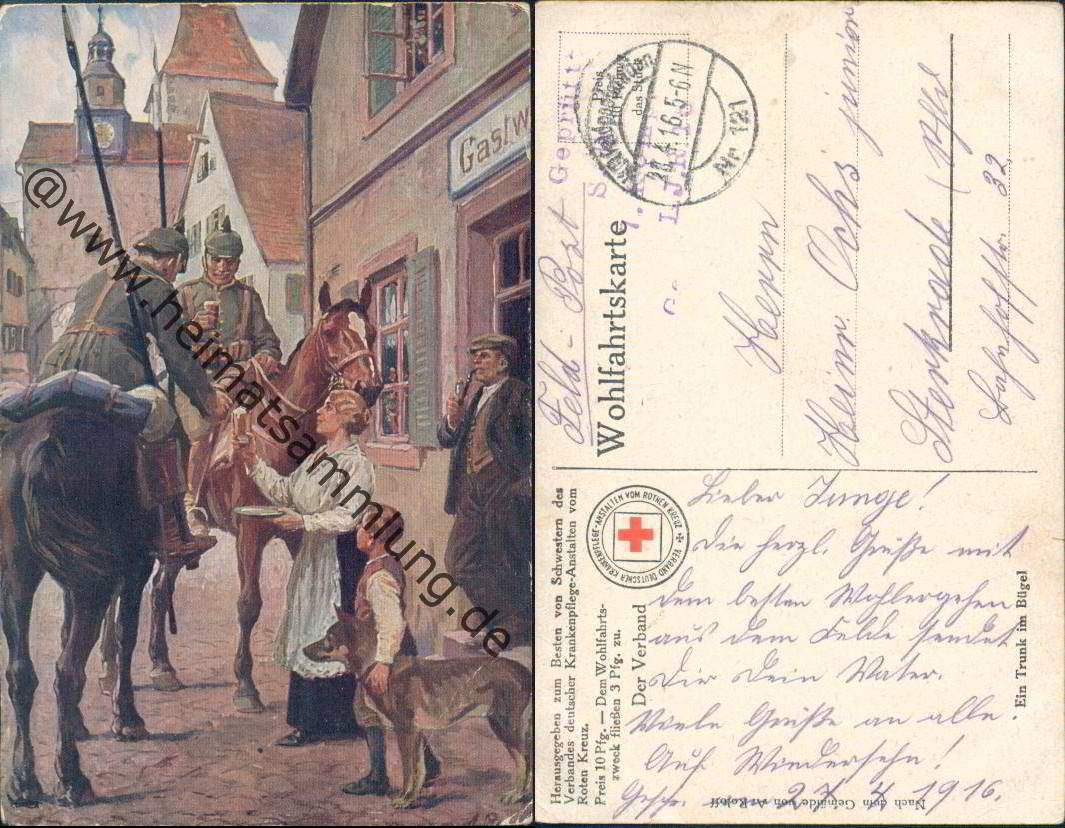 Gastw
@www.heimatsammlung.de
Feld-Post
Wohlfahrtskarte
Geprüft
Preis
das Stück
30.4.16.5-6N
Nr 121
Herrn
Heinr. Ochs junior
Sterkrade
Bahnhofstr. 32
Herausgegeben zum Besten von Schwestern des
Verbandes deutscher Krankenpflege-Anstalten vom
Roten Kreuz.
Preis 10 Pfg. — Dem Wohlfahrts-
zweck fließen 3 Pfg. zu.
Der Verband
VERBAND DEUTSCHER KRANKENPFLEGE-ANSTALTEN VOM ROTHEN KREUZ
Lieber Junge!
Die herzl. Grüße mit
dem besten Wohlergehen
aus dem Felde sendet
Dir Dein Vater.
Viele Grüße an alle.
Auf Wiedersehn!
1916.
Ein Trunk im Bügel
Nach dem Gemälde von A. Roloff